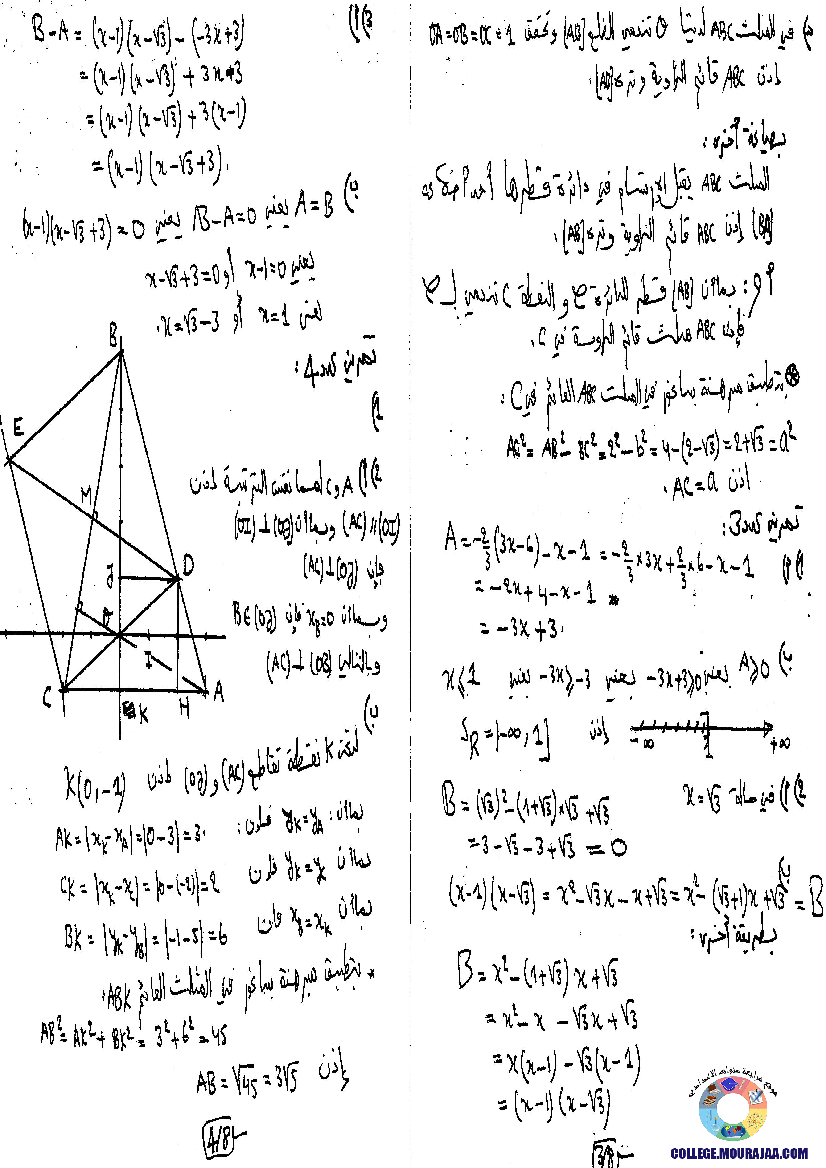 في المثلث ABC لدينا O تنتمي الضلع [AB] وتحقق OA=OB=OC=1
إذن ABC قائم الزاوية وتره [AB].
بصياغة أخرى:
المثلث ABC يقبل الارتسام في دائرة قطرها أحد أضلاعه
[BA] إذن ABC قائم الزاوية وتره [AB].
أو: بما أن [AB] قطر للدائرة و النقطة C تنتمي لـ
فإن ABC مثلث قائم الزاوية في C.
بتطبيق مبرهنة بيتاغور في المثلث ABC القائم في C:
AC² = AB² - BC² = 2² - b² = 4-(2-√3) = 2+√3 = a²
إذن AC = a.
تمرين عدد3:
1) أ) A = -2/3 (3x-6) - x - 1 = -2/3 × 3x + 2/3 × 6 - x - 1
= -2x + 4 - x - 1
= -3x + 3.
ب) A ≥ 0 يعني -3x+3 ≥ 0 يعني -3x ≥ -3 يعني x ≤ 1
إذن S_R = ]-∞, 1]
-∞ 1 +∞
2) أ) في حالة x = √3
B = (√3)² - (1+√3)×√3 + √3
= 3 - √3 - 3 + √3 = 0
ب) (x-1)(x-√3) = x² - √3x - x + √3 = x² - (√3+1)x + √3 = B
بطريقة أخرى:
B = x² - (1+√3)x + √3
= x² - x - √3x + √3
= x(x-1) - √3(x-1)
= (x-1)(x-√3)
3/8
3) أ)
B-A = (x-1)(x-√3) - (-3x+3)
= (x-1)(x-√3) + 3x-3
= (x-1)(x-√3) + 3(x-1)
= (x-1)(x-√3+3).
ب) A = B يعني B-A=0 يعني (x-1)(x-√3+3) = 0
يعني x-1=0 أو x-√3+3=0
يعني x=1 أو x=√3-3.
تمرين عدد4:
1)
B
E
M
J
D
O
I
C
K
H
A
2) أ) A و C لهما نفس الترتيبة إذن
(AC) // (OI) وبما أن (OI) ⊥ (OJ)
فإن (AC) ⊥ (OJ)
وبما أن x_B=0 فإن B∈(OJ)
وبالتالي (AC) ⊥ (OB)
ب)
لتكن K نقطة تقاطع (AC) و (OJ) إذن K(0,-1)
بما أن: y_K = y_A فإن: AK = |x_K - x_A| = |0-3| = 3.
بما أن y_K = y_C فإن CK = |x_K - x_C| = |0-(-2)| = 2
بما أن x_B = x_K فإن BK = |y_K - y_B| = |-1-5| = 6
* بتطبيق مبرهنة بيتاغور في المثلث القائم ABK:
AB² = AK² + BK² = 3² + 6² = 45
إذن AB = √45 = 3√5
4/8
COLLEGE.MOURAJAA.COM